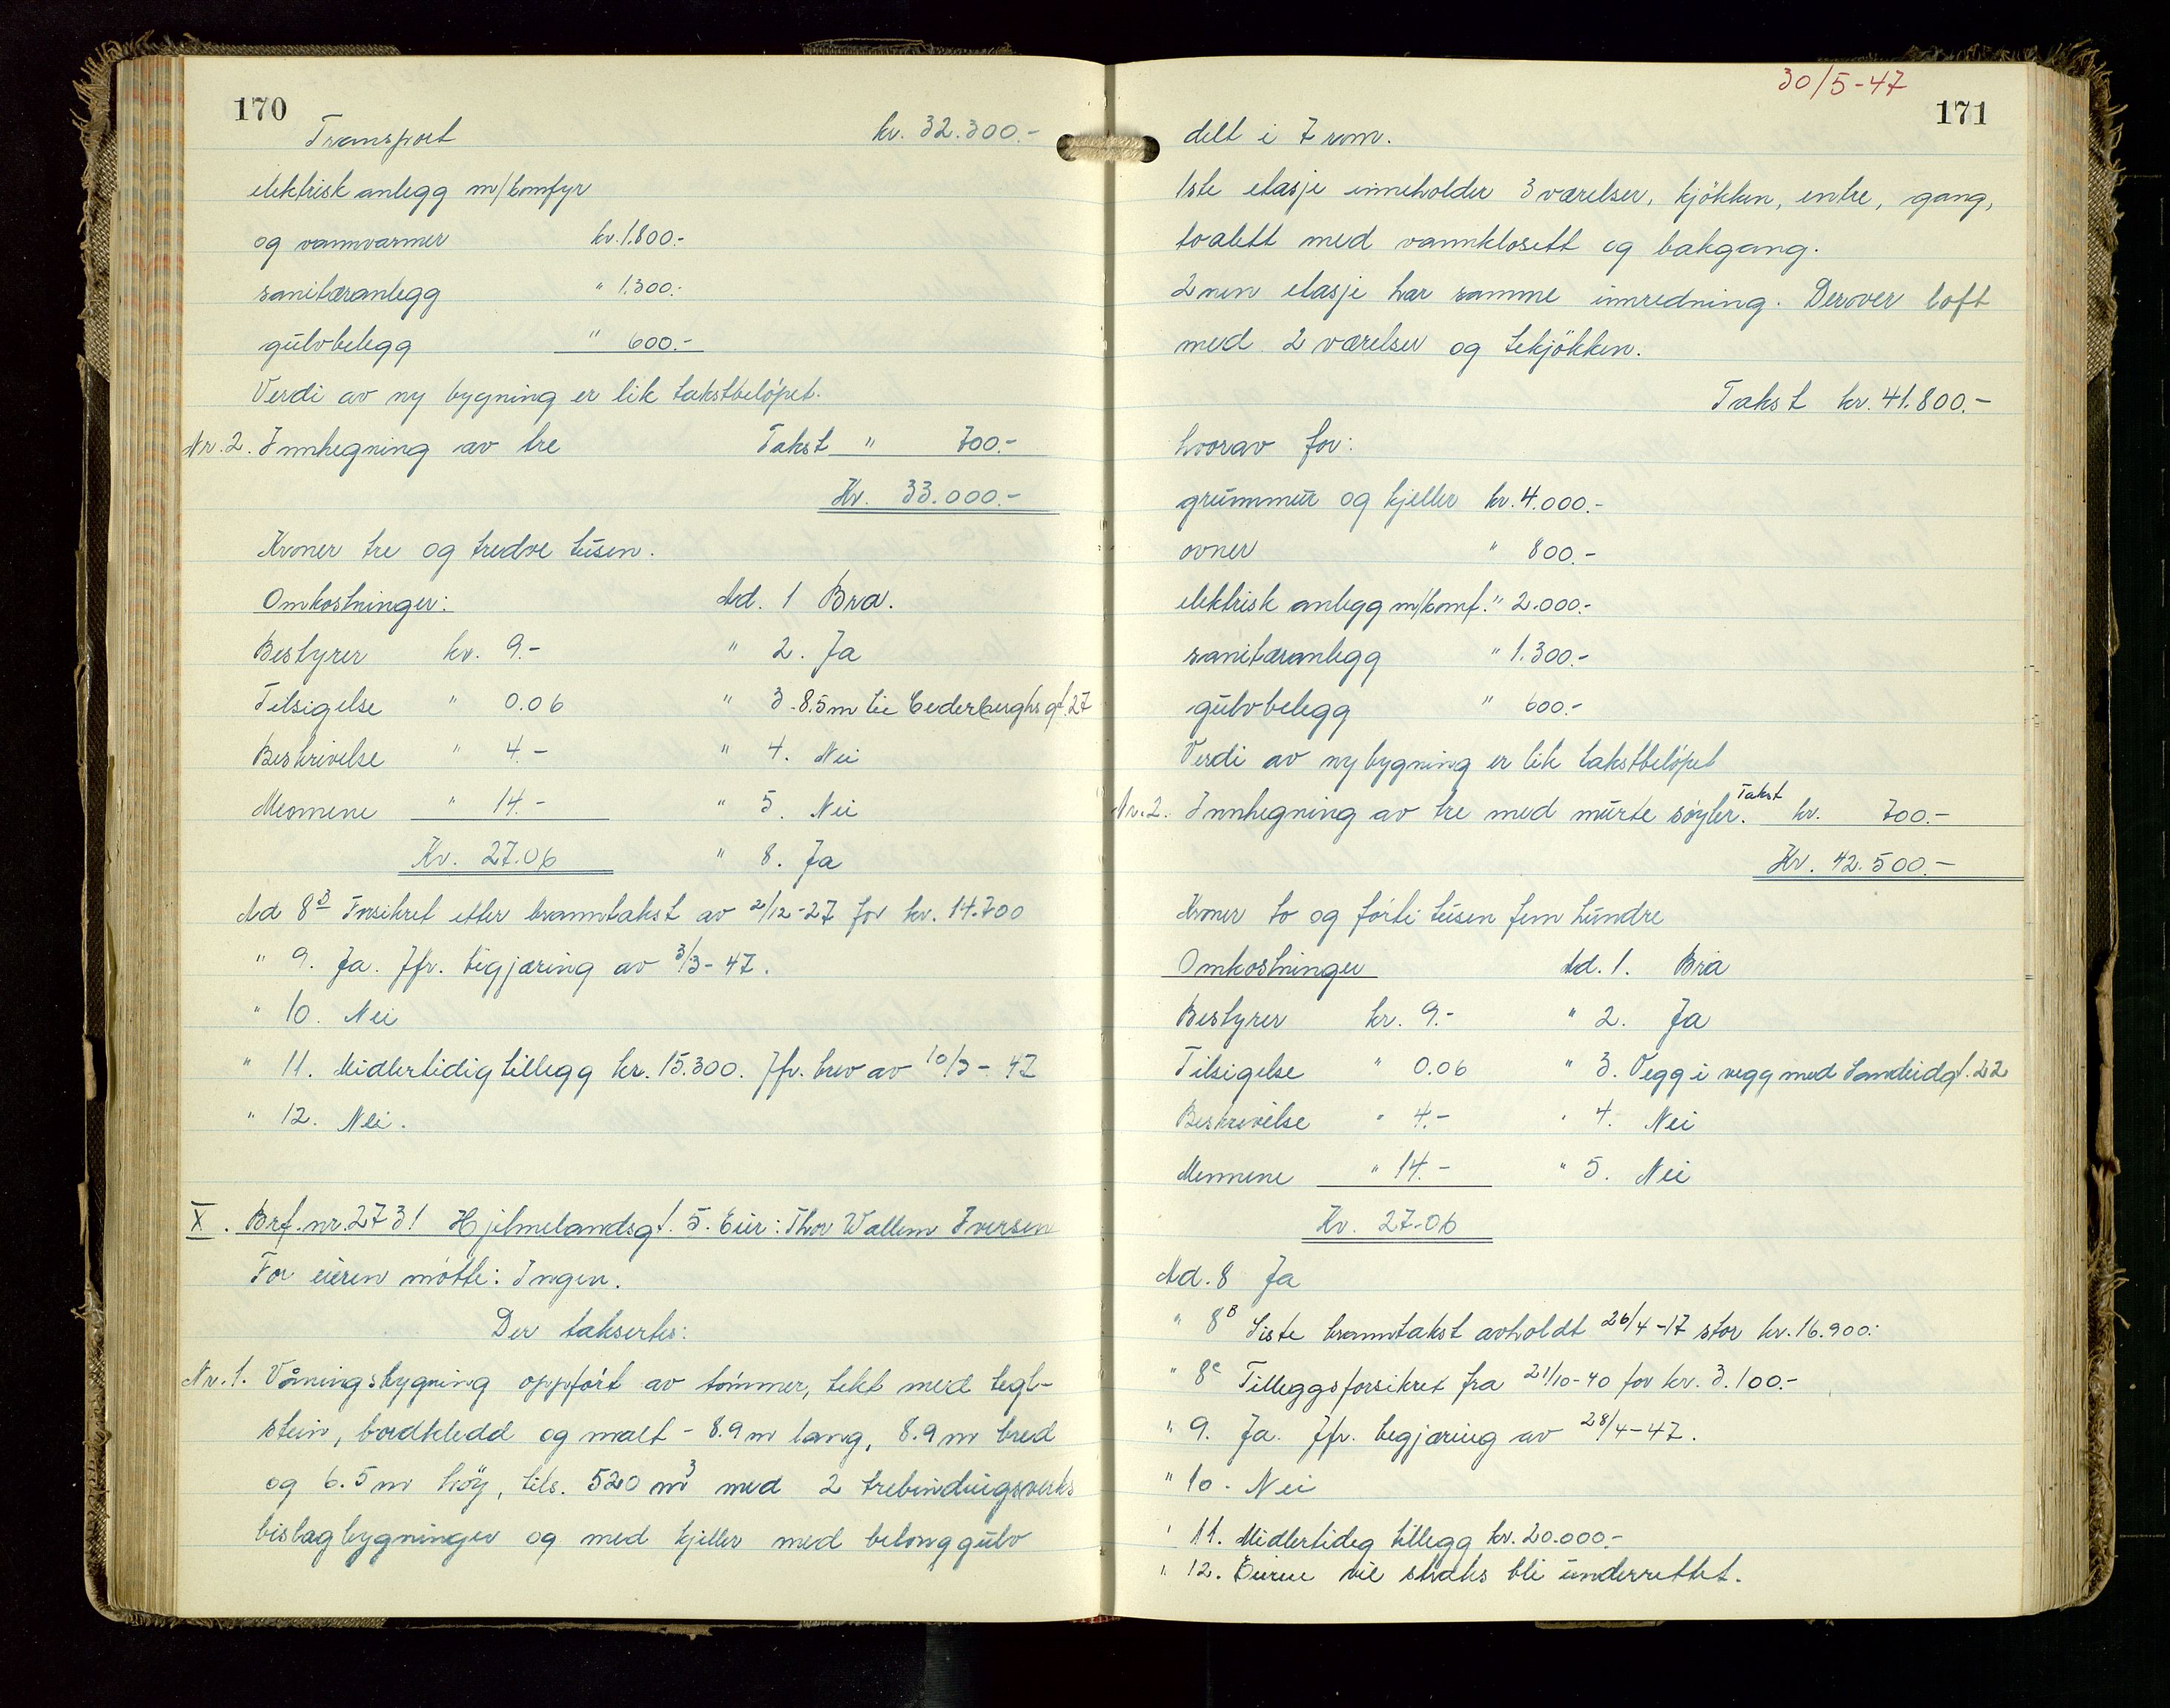 170
Transport kr. 32.300.-
elektrisk anlegg m/komfyr
og vannvarmer kr. 1.800.-
sanitæranlegg " 1.300.-
gulvbelegg " 600.-
Verdi av ny bygning er lik takstbeløpet.
Nr. 2. Innhegning av tre Takst " 700.-
Kr. 33.000.-
Kroner tre og tredve tusen.
Omkostninger: Ad. 1 Bra.
Bestyrer kr. 9.- " 2. Ja
Tilsigelse " 0.06 " 3 - 8.5 m til Cederberghs gt. 27
Beskrivelse " 4.- " 4. Nei
Mennene " 14.- " 5. Nei
Kr. 27.06 " 8. Ja
Ad 8B Forsikret etter branntakst av 2/12-27 for kr. 14.700
" 9. Ja. Jfr. begjæring av 3/3-47.
" 10. Nei
" 11. Midlertidig tillegg kr. 15.300. Jfr. brev av 10/3-47
" 12. Nei.
X. Brf. nr. 2731 Hjelmelandsgt. 5. Eier: Thor Wallem Iversen
For eieren møtte: Ingen.
Der taksertes:
Nr. 1. Våningsbygning oppført av tømmer, tekt med tegl-
stein, bordkledd og malt - 8.9 m lang, 8.9 m bred
og 6.5 m høy, tils. 520 m3 med 2 trebindingsverks
bislagbygninger og med kjeller med betonggulv
30/5-47
171
delt i 7 rom.
1ste etasje inneholder 3 værelser, kjøkken, entre, gang,
toalett med vannklosett og bakgang.
2nen etasje har samme innredning. Derover loft
med 2 værelser og tekjøkken.
Takst kr. 41.800.-
hvorav for:
grunnmur og kjeller kr. 4.000.-
ovner " 800.-
elektrisk anlegg m/komf. " 2.000.-
sanitæranlegg " 1.300.-
gulvbelegg " 600.-
Verdi av ny bygning er lik takstbeløpet
Nr. 2. Innhegning av tre med murte søyler. Takst kr. 700.-
Kr. 42.500.-
Kroner to og førti tusen fem hundre
Omkostninger Ad. 1. Bra
Bestyrer kr. 9.- " 2. Ja
Tilsigelse " 0.06 " 3. Vegg i vegg med Sandeidgt. 22
Beskrivelse " 4.- " 4. Nei
Mennene " 14.- " 5. Nei
Kr. 27.06
Ad. 8 Ja
" 8B Siste branntakst avholdt 26/4-17 stor kr. 16.900.-
" 8C Tilleggsforsikret fra 21/10-40 for kr. 3.100.-
" 9. Ja. Jfr. begjæring av 28/4-47.
" 10. Nei
" 11. Midlertidig tillegg kr. 20.000.-
" 12. Eieren vil straks bli underrettet.